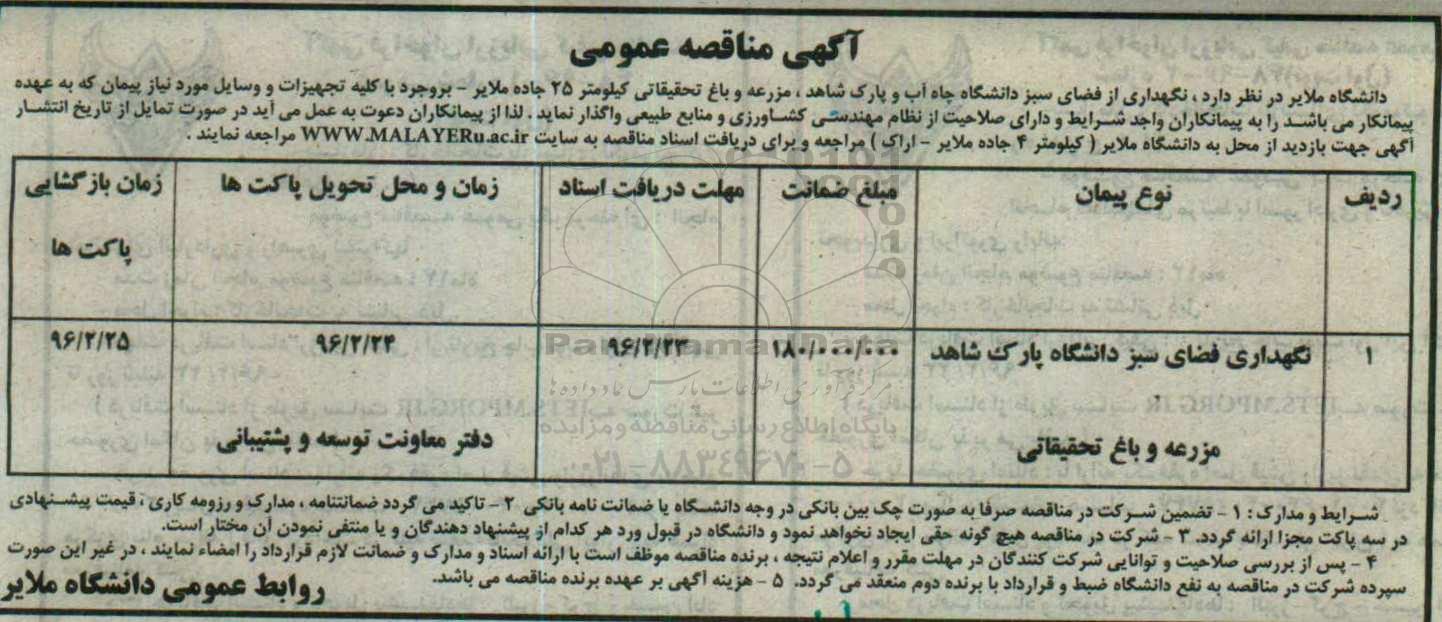 آگهی مناقصه عمومی
دانشگاه ملایر در نظر دارد ، نگهداری از فضای سبز دانشگاه چاه آب و پارک شاهد ، مزرعه و باغ تحقیقاتی کیلومتر ۲۵ جاده ملایر - بروجرد با کلیه تجهیزات و وسایل مورد نیاز پیمان که به عهده
پیمانکار می باشد را به پیمانکاران واجد شرایط و دارای صلاحیت از نظام مهندسی کشاورزی و منابع طبیعی واگذار نماید . لذا از پیمانکاران دعوت به عمل می آید در صورت تمایل از تاریخ انتشار
آگهی جهت بازدید از محل به دانشگاه ملایر ( کیلومتر ۴ جاده ملایر - اراک ) مراجعه و برای دریافت اسناد مناقصه به سایت WWW.MALAYERu.ac.ir مراجعه نمایند .
ردیف نوع پیمان مبلغ ضمانت مهلت دریافت اسناد زمان و محل تحویل پاکت ها زمان بازگشایی
پاکت ها
۱ نگهداری فضای سبز دانشگاه پارک شاهد ۱۸۰/۰۰۰/۰۰۰ ۹۶/۲/۲۳ ۹۶/۲/۲۴ ۹۶/۲/۲۵
مزرعه و باغ تحقیقاتی دفتر معاونت توسعه و پشتیبانی
ParsNamadData
مرکز فرآوری اطلاعات پارس نماد داده ها
پایگاه اطلاع رسانی مناقصه و مزایده
۰۲۱-۸۸۳۴۹۶۷۰-۵
شرایط و مدارک : ۱ - تضمین شرکت در مناقصه صرفا به صورت چک بین بانکی در وجه دانشگاه یا ضمانت نامه بانکی ۲ - تاکید می گردد ضمانتنامه ، مدارک و رزومه کاری ، قیمت پیشنهادی
در سه پاکت مجزا ارائه گردد. ۳ - شرکت در مناقصه هیچ گونه حقی ایجاد نخواهد نمود و دانشگاه در قبول ورد هر کدام از پیشنهاد دهندگان و یا منتفی نمودن آن مختار است.
۴ - پس از بررسی صلاحیت و توانایی شرکت کنندگان در مهلت مقرر و اعلام نتیجه ، برنده مناقصه موظف است با ارائه اسناد و مدارک و ضمانت لازم قرارداد را امضاء نمایند ، در غیر این صورت
سپرده شرکت در مناقصه به نفع دانشگاه ضبط و قرارداد با برنده دوم منعقد می گردد. ۵ - هزینه آگهی بر عهده برنده مناقصه می باشد.
روابط عمومی دانشگاه ملایر